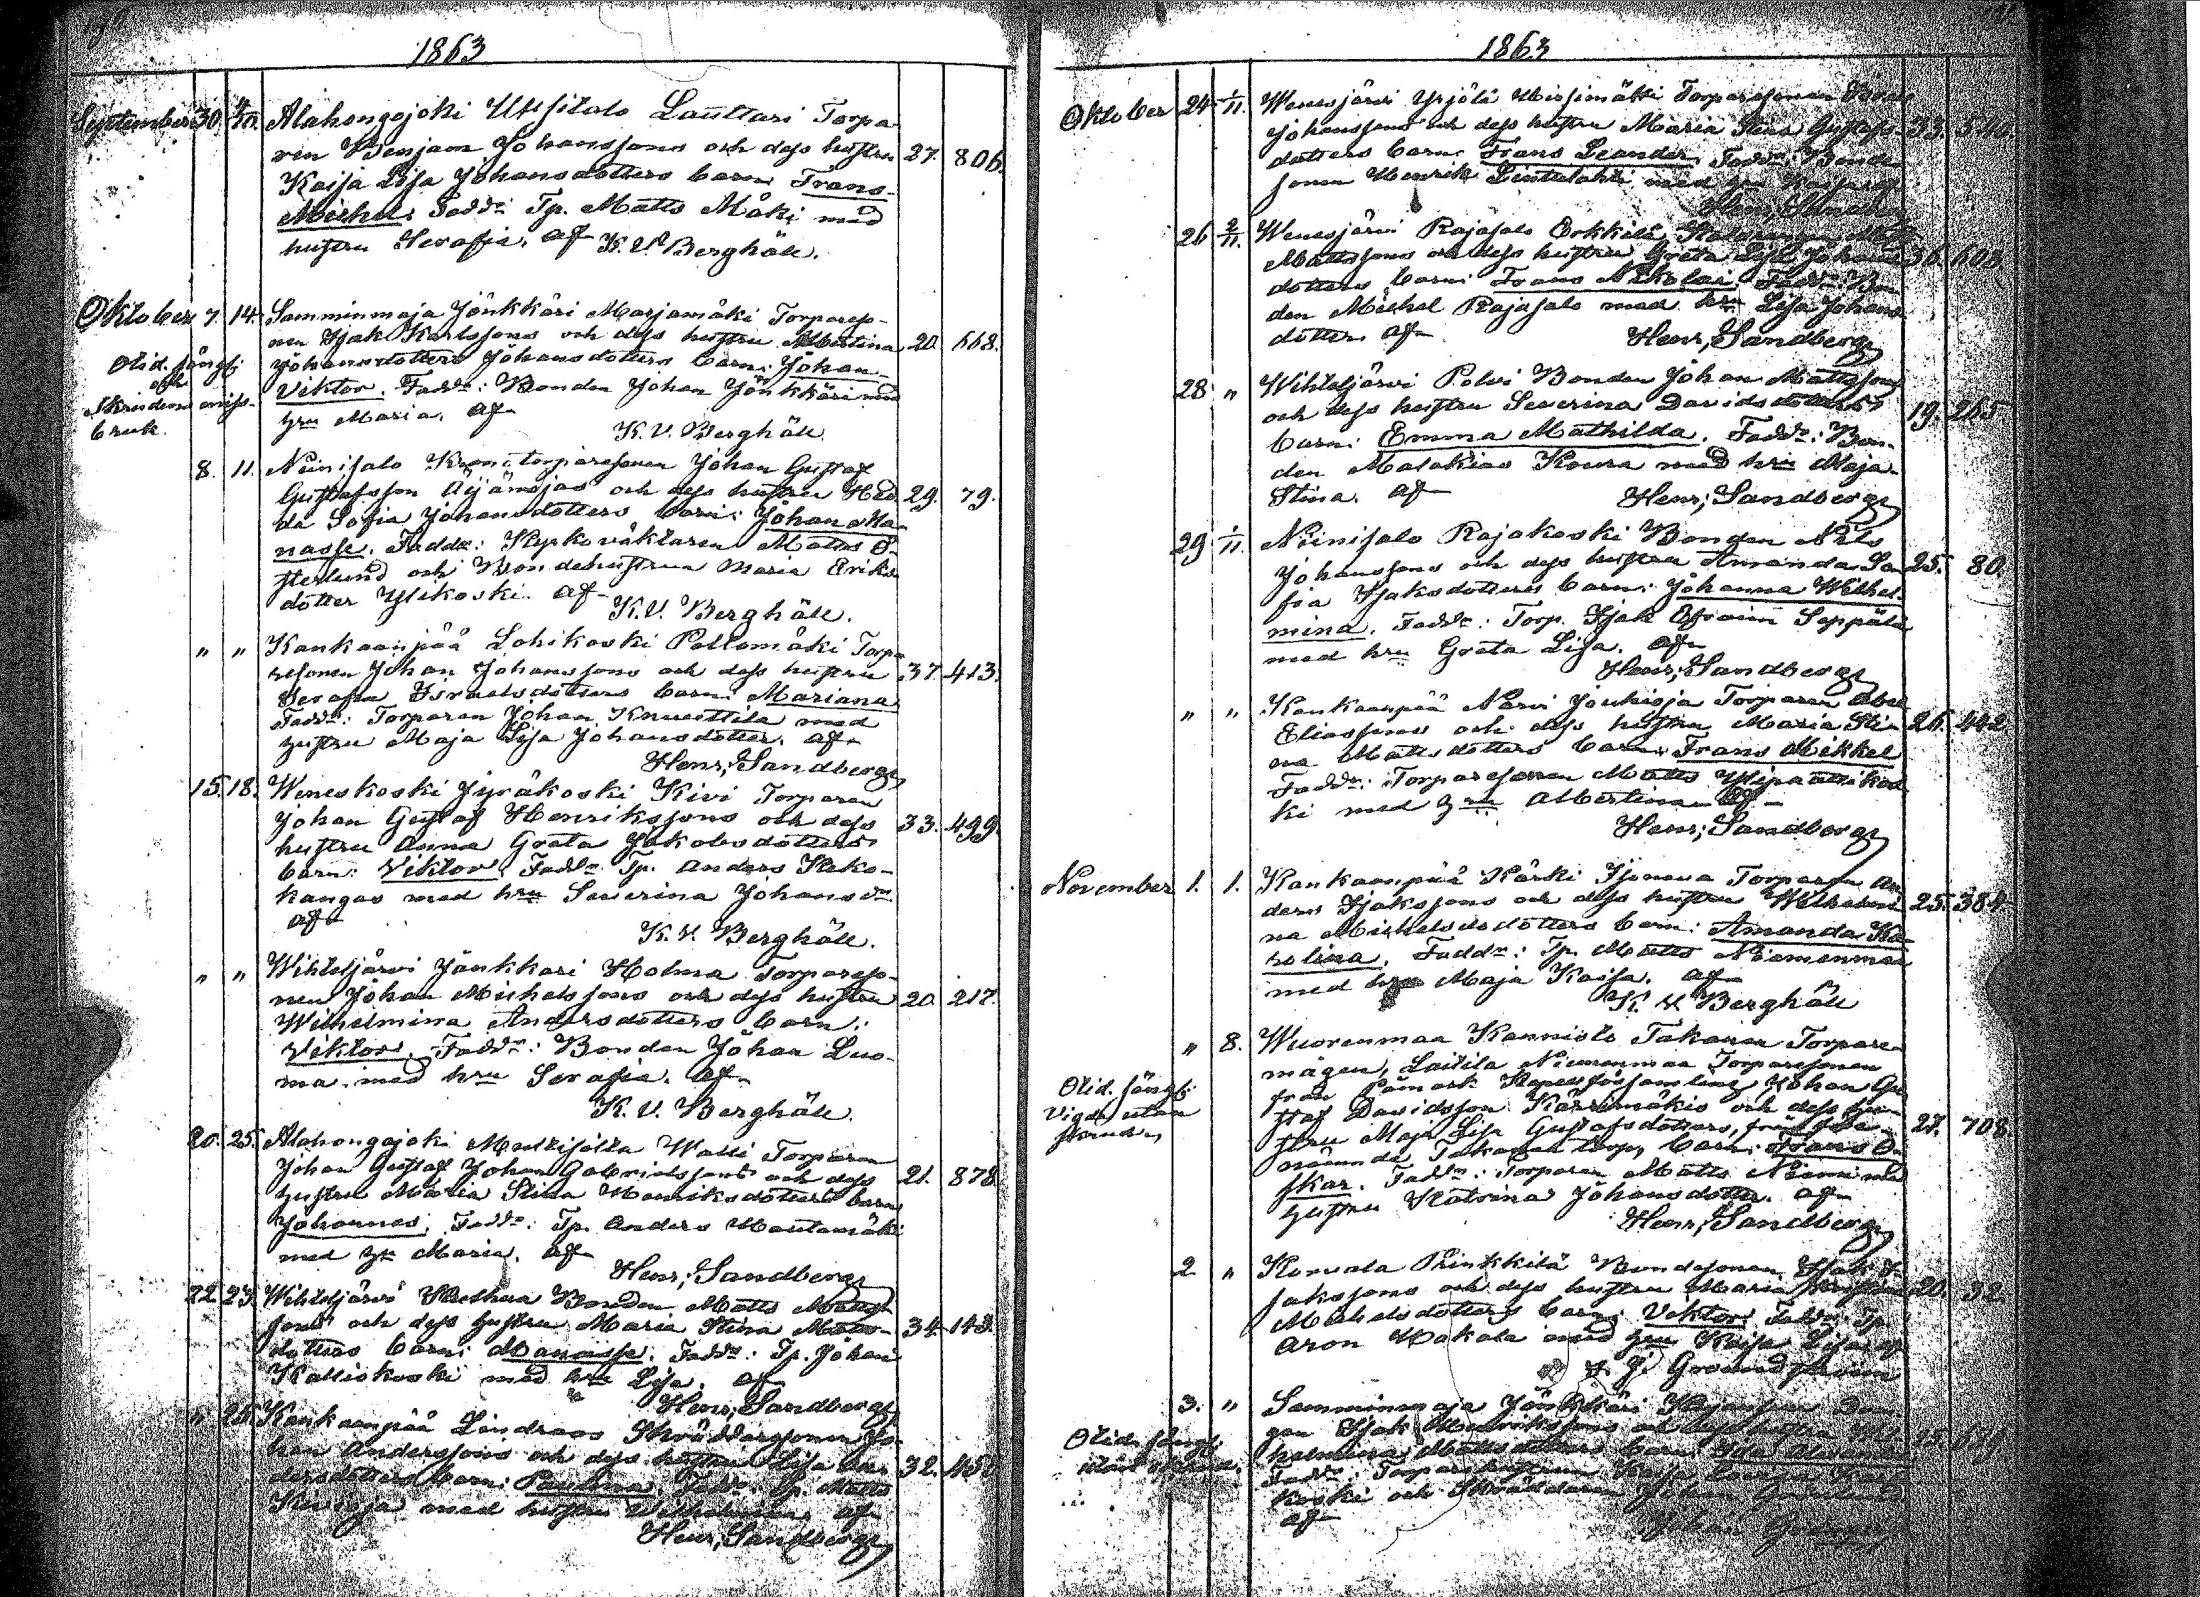 1863
September 30. 4/10. Alahongojoki Uusitalo Lauttari Torpa-
ren Benjam Johanssons och dess hustru 27. 806.
Kaisa Lisa Johansdotters barn: Frans
Michel. Fadd: Tp. Matts Mäki med
hustru Serafia. af K. V. Berghäll.
Oktober 7. 14. Samminmaja Jönkkäri Marjamäki Torpareso-
nen Isak Karlssons och dess hustru Albertina 20. 668.
Johansdotters Johansdotters barn: Johan
Viktor. Fadd: Bonden Johan Jönkkäri med
hru Maria. af
K. V. Berghäll.
Olid. sängl:
och
Skruden miss-
bruk.
8. 11. Niinisalo Kronotorparesonen Johan Gustaf
Gustafsson Äijänojas och dess hustru Hed- 29. 79.
da Sofia Johansdotters barn: Johan Ma-
nasse. Fadd: Kyrkoväktaren Matts Ö-
sterlund och Bondehustrun Maria Eriks-
dotter Ylikoski. af
K. V. Berghäll.
" " Kankaanpää Lohikoski Pollomäki Torpa-
resonen Johan Johanssons och dess hustru 37. 413.
Serafia Israelsdotters barn: Mariana
Fadd: Torparen Johan Knuuttila med
hustru Maja Lisa Johansdotter. af
Henr; Sandberg
15. 18. Weneskoski Jyräkoski Kivi Torparen
Johan Gustaf Henrikssons och dess 33. 499.
hustru Anna Greta Jakobsdotters
barn: Viktor. Fadd: Tp. Anders Keko-
kangas med hru Severina Johansdr.
af
K. V. Berghäll.
" " Wihteljärvi Jänkkäri Holma Torpareso-
nen Johan Michelssons och dess hustru 20. 217.
Wilhelmina Andersdotters barn:
Viktor. Fadd: Bonden Johan Luo-
ma med hru Serafia. af
K. V. Berghäll.
20. 25. Alahongojoki Multisilta Walli Torparen
Johan Gustaf Johan Gabrielssons och dess 21. 878.
hustru Maria Stina Henriksdotters barn
Johannes. Fadd: Tp. Anders Mäntymäki
med hru Maria. af
Henr; Sandberg
22. 23. Wihteljärvi Bonden Matts Matts-
sons och dess hustru Maria Stina Matts- 34. 143.
dotters barn: Manasse. Fadd: Tp. Johan
Kalliokoski med hru Lisa. af
Henr; Sandberg
" 25. Kankaanpää Lindroos Skräddaresonen Jo-
han Anderssons och dess hustru Lisa An- 32.
dersdotters barn: Paulina. Fadd: Tp. Matts
med hustru Wilhelmina af
Henr; Sandberg
1863
Oktober 24. 1/11. Wenesjärvi Yrjölä Torparesonen
Johanssons och dess hustru Maria Stina Gustafs- 33.
dotters barn: Frans Leander. Fadd: Bonde-
sonen Henrik Linttulahti med hru
Henr; Sandberg
26. 2/11. Wenesjärvi Rajasalo Erkkilä
Mattssons och dess hustru Greta Lisa Johans- 36. 603.
dotters barn: Frans Nikolai. Fadd: Bon-
den Michel Rajasalo med hru Lisa Johans-
dotter. af Henr; Sandberg
28. " Wihteljärvi Polvi Bonden Johan Mattssons
och dess hustru Severina Davidsdotters 19. 265
barn: Emma Mathilda. Fadd: Bon-
den Malakias Koura med hru Maja
Stina. af Henr; Sandberg
29. 1/11. Niinisalo Rajakoski Bonden Nils
Johanssons och dess hustru Amanda So- 25. 80.
fia Isaksdotters barn: Johanna Wilhel-
mina. Fadd: Torp. Isak Efraim Seppälä
med hru Greta Lisa. af
Henr; Sandberg
" " Kankaanpää Närvi Jouhioja Torparen Abel
Eliassons och dess hustru Maria Sti- 26. 442.
na Mattsdotters barn: Frans Mikkel
Fadd: Torparesonen Matts Ylipaattikos-
ki med hru Albertina. af
Henr; Sandberg
November 1. 1. Kankaanpää Kärki Torparen An-
ders Isakssons och dess hustru Wilhelmi- 25. 384.
na Michelsdotters barn: Amanda Ka-
rolina. Fadd: Tp. Matts Niemenmaa
med hru Maja Kaisa. af
K. V. Berghäll
" 8. Wuorenmaa Kannisto Takanen Torpare-
mågen, Laitila Niemenmaa Torparesonen
från Påmark Kapellförsamling Johan Gu-
staf Davidsson Kärrimäkis och dess hu-
stru Maja Lisa Gustafsdotters, från 27. 708.
nämnde Takanen torp, barn: Frans O-
skar. Fadd: Torparen Matts Niemi med
hustru Katrina Johansdotter. af
Henr; Sandberg
Olid. sängl:
Vigda utan
skrud
2. " Korvala Pinkkilä Bondesonen Isak I-
sakssons och dess hustru Maria 20. 32.
Michelsdotters barn: Viktor Fadd: Tp.
Aron Makala med hru Kaisa Lisa af
F. J. Groundstroem
3. " Samminmaja Jönkkäri Bon-
den Isak Henrikssons och dess hustru Wil-
helmina Mattsdotters barn: Ida
Fadd: Torparehustrun Kaisa
koski och Skräddaren Johan
af
Olid. sängl:
utan